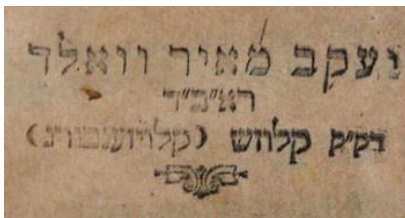 יעקב מאיר וואלד
ראב״ד
דק״ק קלויש (קלויזענבורג)